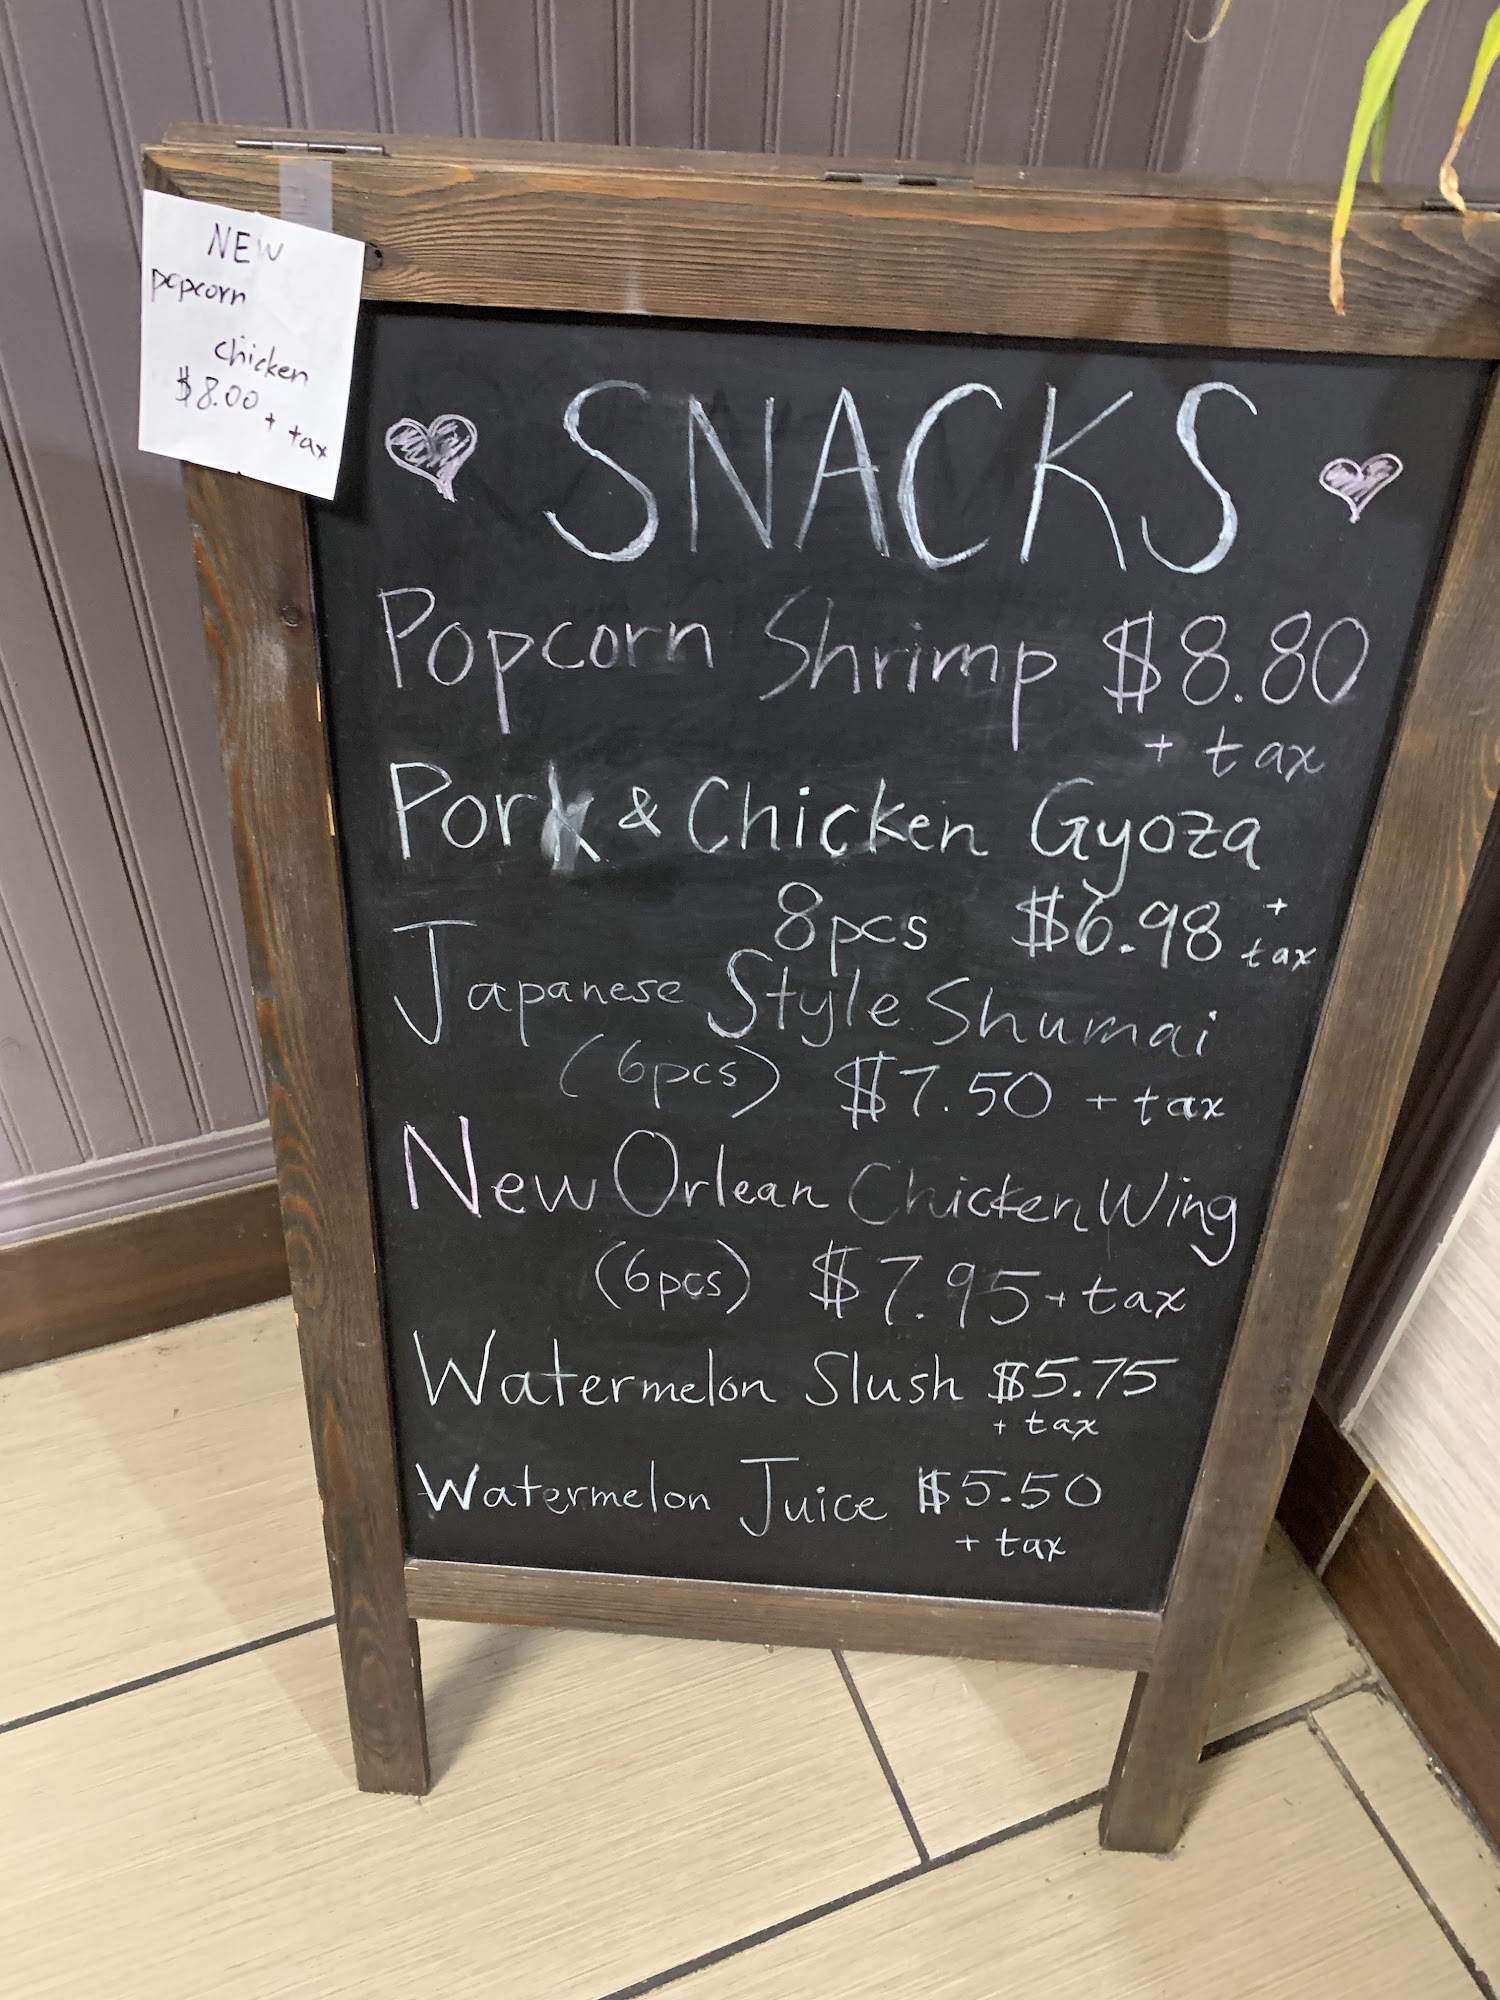 NEW
popcorn
chicken
$8.00 + tax
SNACKS
Popcorn Shrimp $8.80
+ tax
Pork & Chicken Gyoza
8pcs $6.98 + tax
Japanese Style Shumai
(6pcs) $7.50 + tax
New Orlean Chicken Wing
(6pcs) $7.95 + tax
Watermelon Slush $5.75
+ tax
Watermelon Juice $5.50
+ tax